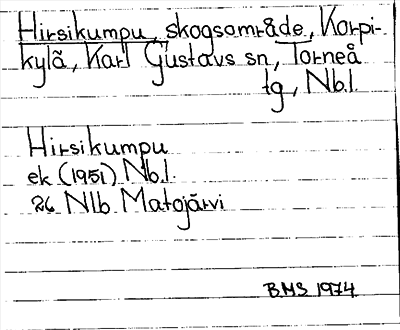 Hirsikumpu, skogsområde, Korpi-
kylä, Karl Gustavs sn, Torneå
tg, Nb.l.
Hirsikumpu
ek (1951) Nb.l.
26 Nlb Matojärvi
B.M.S 1974